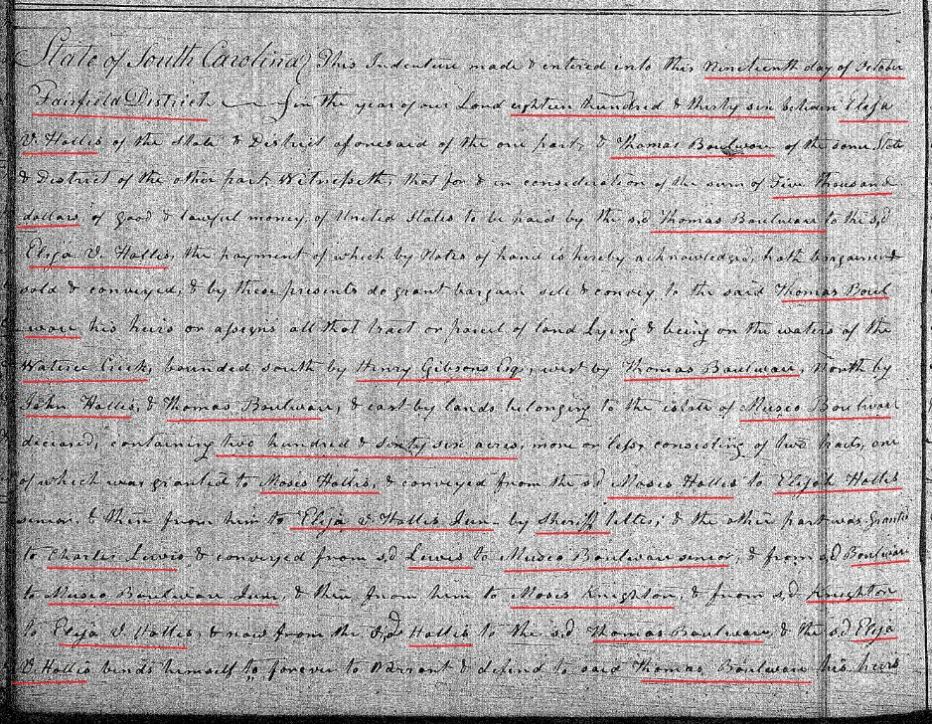 State of South Carolina } This Indenture made & entered into this Nineteenth day of October
Fairfield District } in the year of our Lord eighteen hundred & thirty six between Elija
V. Hollis of the State & District aforesaid of the one part, & Thomas Boulware of the same State
& District of the other part, Witnesseth, that for & in consideration of the sum of Five thousand
dollars of good & lawful money, of United States to be paid by the sd Thomas Boulware to the sd
Elija V. Hollis, the payment of which by Notes of hand is hereby acknowledged, hath bargained
sold & conveyed, & by these presents do grant bargain sell & convey to the said Thomas Boul
ware his heirs or assigns all that tract or parcel of land Lying & being on the waters of the
Wateree Creek, bounded south by Henry Gibsons Esq, west by Thomas Boulware, North by
John Hollis, & Thomas Boulware, & east by lands belonging to the estate of Museo Boulware
deceased, containing two hundred & sixty six acres, more or less, consisting of two tracts, one
of which was granted to Moses Hollis, & conveyed from the sd Moses Hollis to Elijah Hollis
senior, & then from him to Elija V Hollis Jun by sheriff titles, & the other part was granted
to Charles Lewis & conveyed from sd Lewis to Museo Boulware senior, & from sd Boulware
to Museo Boulware Jun, & then from him to Moses Knighton, & from sd Knighton
to Elija V. Hollis, & now from the sd Hollis to the sd Thomas Boulware, & the sd Elija
V. Hollis binds himself to forever to Warrant & defend to said Thomas Boulware his heirs